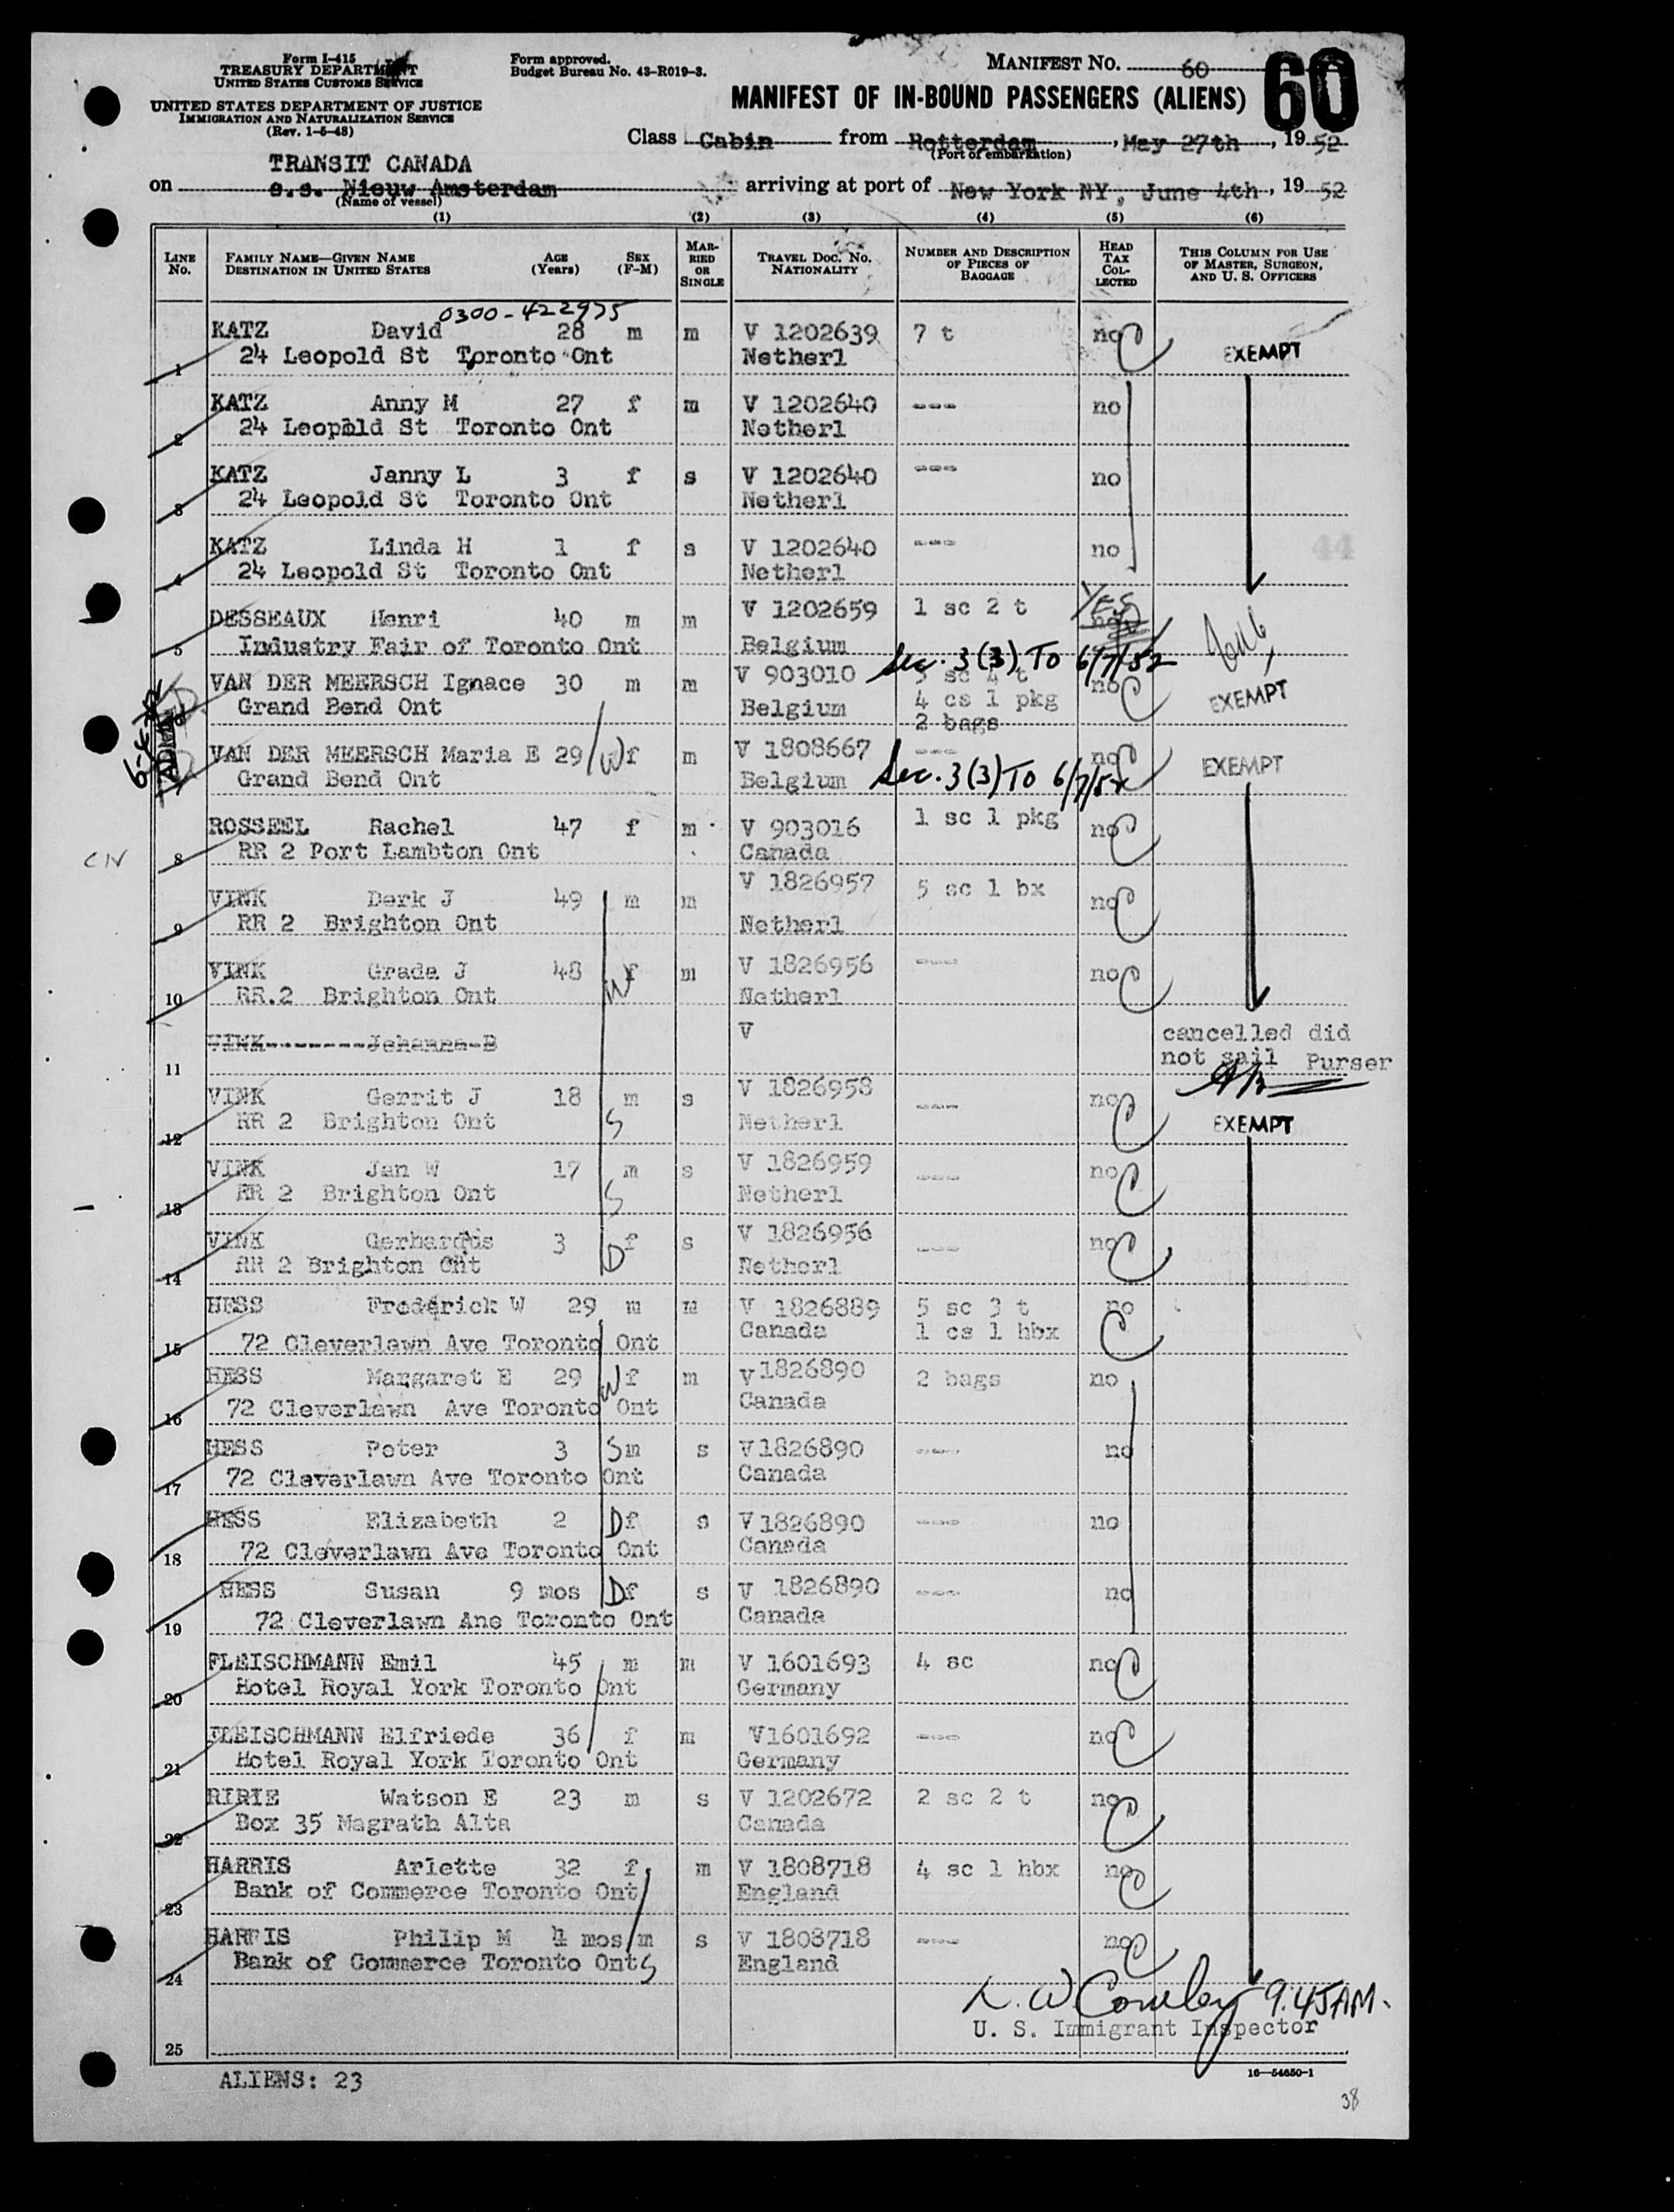 Form I-415
TREASURY DEPARTMENT
UNITED STATES CUSTOMS SERVICE
UNITED STATES DEPARTMENT OF JUSTICE
IMMIGRATION AND NATURALIZATION SERVICE
(Rev. 1-5-48)
Form approved.
Budget Bureau No. 43-R019-3.
MANIFEST NO. 60
60
MANIFEST OF IN-BOUND PASSENGERS (ALIENS)
Class Cabin from Rotterdam, May 27th, 19 52
(Port of embarkation)
TRANSIT CANADA
on s.s. Nieuw Amsterdam arriving at port of New York NY, June 4th, 19 52
(Name of vessel)
(1) (2) (3) (4) (5) (6)
LINE No. FAMILY NAME—GIVEN NAME DESTINATION IN UNITED STATES AGE (Years) SEX (F-M) MARRIED OR SINGLE TRAVEL DOC. No. NATIONALITY NUMBER AND DESCRIPTION OF PIECES OF BAGGAGE HEAD TAX COLLECTED THIS COLUMN FOR USE OF MASTER, SURGEON, AND U. S. OFFICERS
0300-422975
KATZ David 28 m m V 1202639 7 t no
1 24 Leopold St Toronto Ont Netherl EXEMPT
KATZ Anny M 27 f m V 1202640 --- no
2 24 Leopold St Toronto Ont Netherl
KATZ Janny L 3 f s V 1202640 --- no
3 24 Leopold St Toronto Ont Netherl
KATZ Linda H 1 f s V 1202640 --- no
4 24 Leopold St Toronto Ont Netherl
44
DESSEAUX Henri 40 m m V 1202659 1 sc 2 t YES no
5 Industry Fair of Toronto Ont Belgium
Sec. 3(3) TO 6/7/52
VAN DER MEERSCH Ignace 30 m m V 903010 3 sc 4 t no EXEMPT
Grand Bend Ont Belgium 4 cs 1 pkg
2 bags
ADMITTED
VAN DER MEERSCH Maria E 29 W f m V 1808667 --- no EXEMPT
Grand Bend Ont Belgium Sec. 3(3) TO 6/7/52
ROSSEEL Rachel 47 f m V 903016 1 sc 1 pkg no
8 RR 2 Port Lambton Ont Canada
VINK Derk J 49 m m V 1826957 5 sc 1 bx no
9 RR 2 Brighton Ont Netherl
VINK Grada J 48 W f m V 1826956 --- no
10 RR.2 Brighton Ont Netherl
VINK--------Johanna-B V cancelled did
11 not sail Purser
VINK Gerrit J 18 m s V 1826958 --- no
12 RR 2 Brighton Ont S Netherl EXEMPT
VINK Jan W 17 m s V 1826959 --- no
13 RR 2 Brighton Ont S Netherl
VINK 3 f s V 1826956 --- no
14 RR 2 Brighton Ont D Netherl
HESS Frederick W 29 m m V 1826889 5 sc 3 t no
15 72 Cleverlawn Ave Toronto Ont Canada 1 cs 1 hbx
HESS Margaret E 29 W f m V 1826890 2 bags no
16 72 Cleverlawn Ave Toronto Ont Canada
HESS Peter 3 S m s V 1826890 --- no
17 72 Cleverlawn Ave Toronto Ont Canada
HESS Elizabeth 2 D f s V 1826890 --- no
18 72 Cleverlawn Ave Toronto Ont Canada
HESS Susan 9 mos D f s V 1826890 --- no
19 72 Cleverlawn Ane Toronto Ont Canada
FLEISCHMANN Emil 45 m m V 1601693 4 sc no
20 Hotel Royal York Toronto Ont Germany
FLEISCHMANN Elfriede 36 f m V1601692 --- no
21 Hotel Royal York Toronto Ont Germany
RIRIE Watson E 23 m s V 1202672 2 sc 2 t no
22 Box 35 Magrath Alta Canada
HARRIS Arlette 32 f m V 1808718 4 sc 1 hbx no
23 Bank of Commerce Toronto Ont England
HARRIS Philip M 4 mos m s V 1808718 --- no
24 Bank of Commerce Toronto Ont S England
9.45AM.
U. S. Immigrant Inspector
25
ALIENS: 23
16—54650-1
38